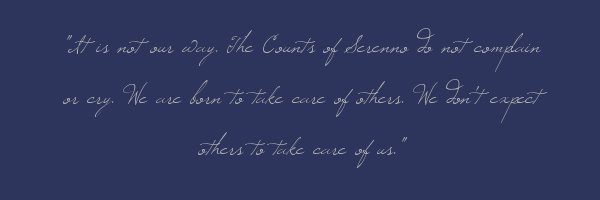 "It is not our way. The Counts of Serenno do not complain
or cry. We are born to take care of others. We don't expect
others to take care of us."